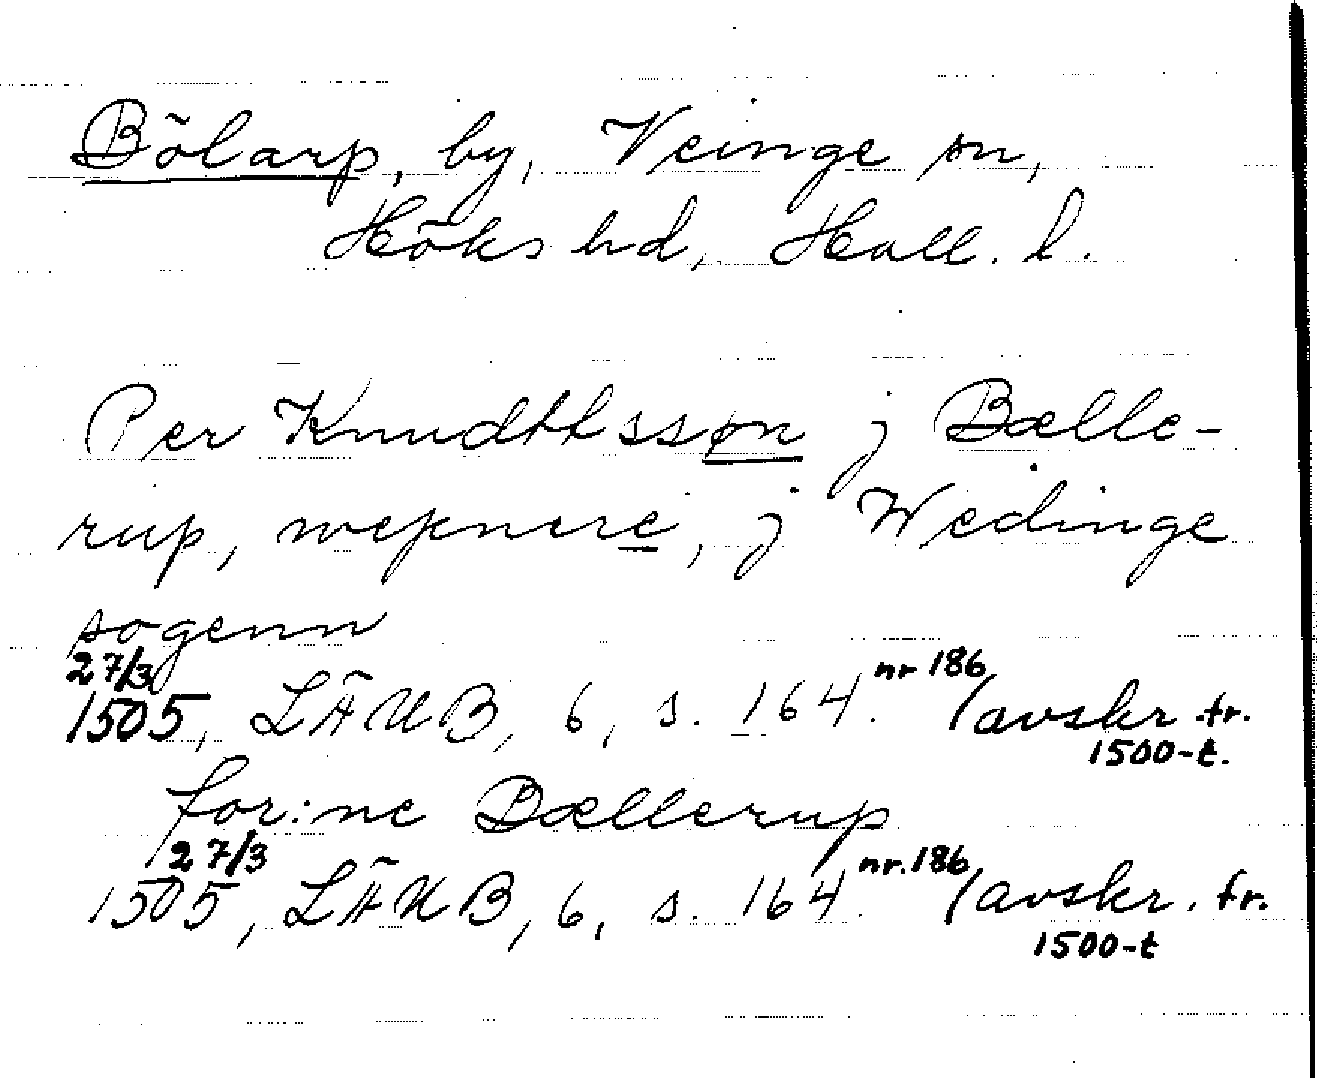 Bölarp, by, Veinge sn,
Höks hd, Hall. l.
Per Knudtlssøn j Bælle-
rup, wepnere, j Wedinge
sogenn
27/3 1505, LÄUB, 6, s. 164. nr 186 /avskr. fr.
1500-t.
for:ne Bællerup
27/3 1505, LÄUB, 6, s. 164. nr. 186 /avskr. fr.
1500-t